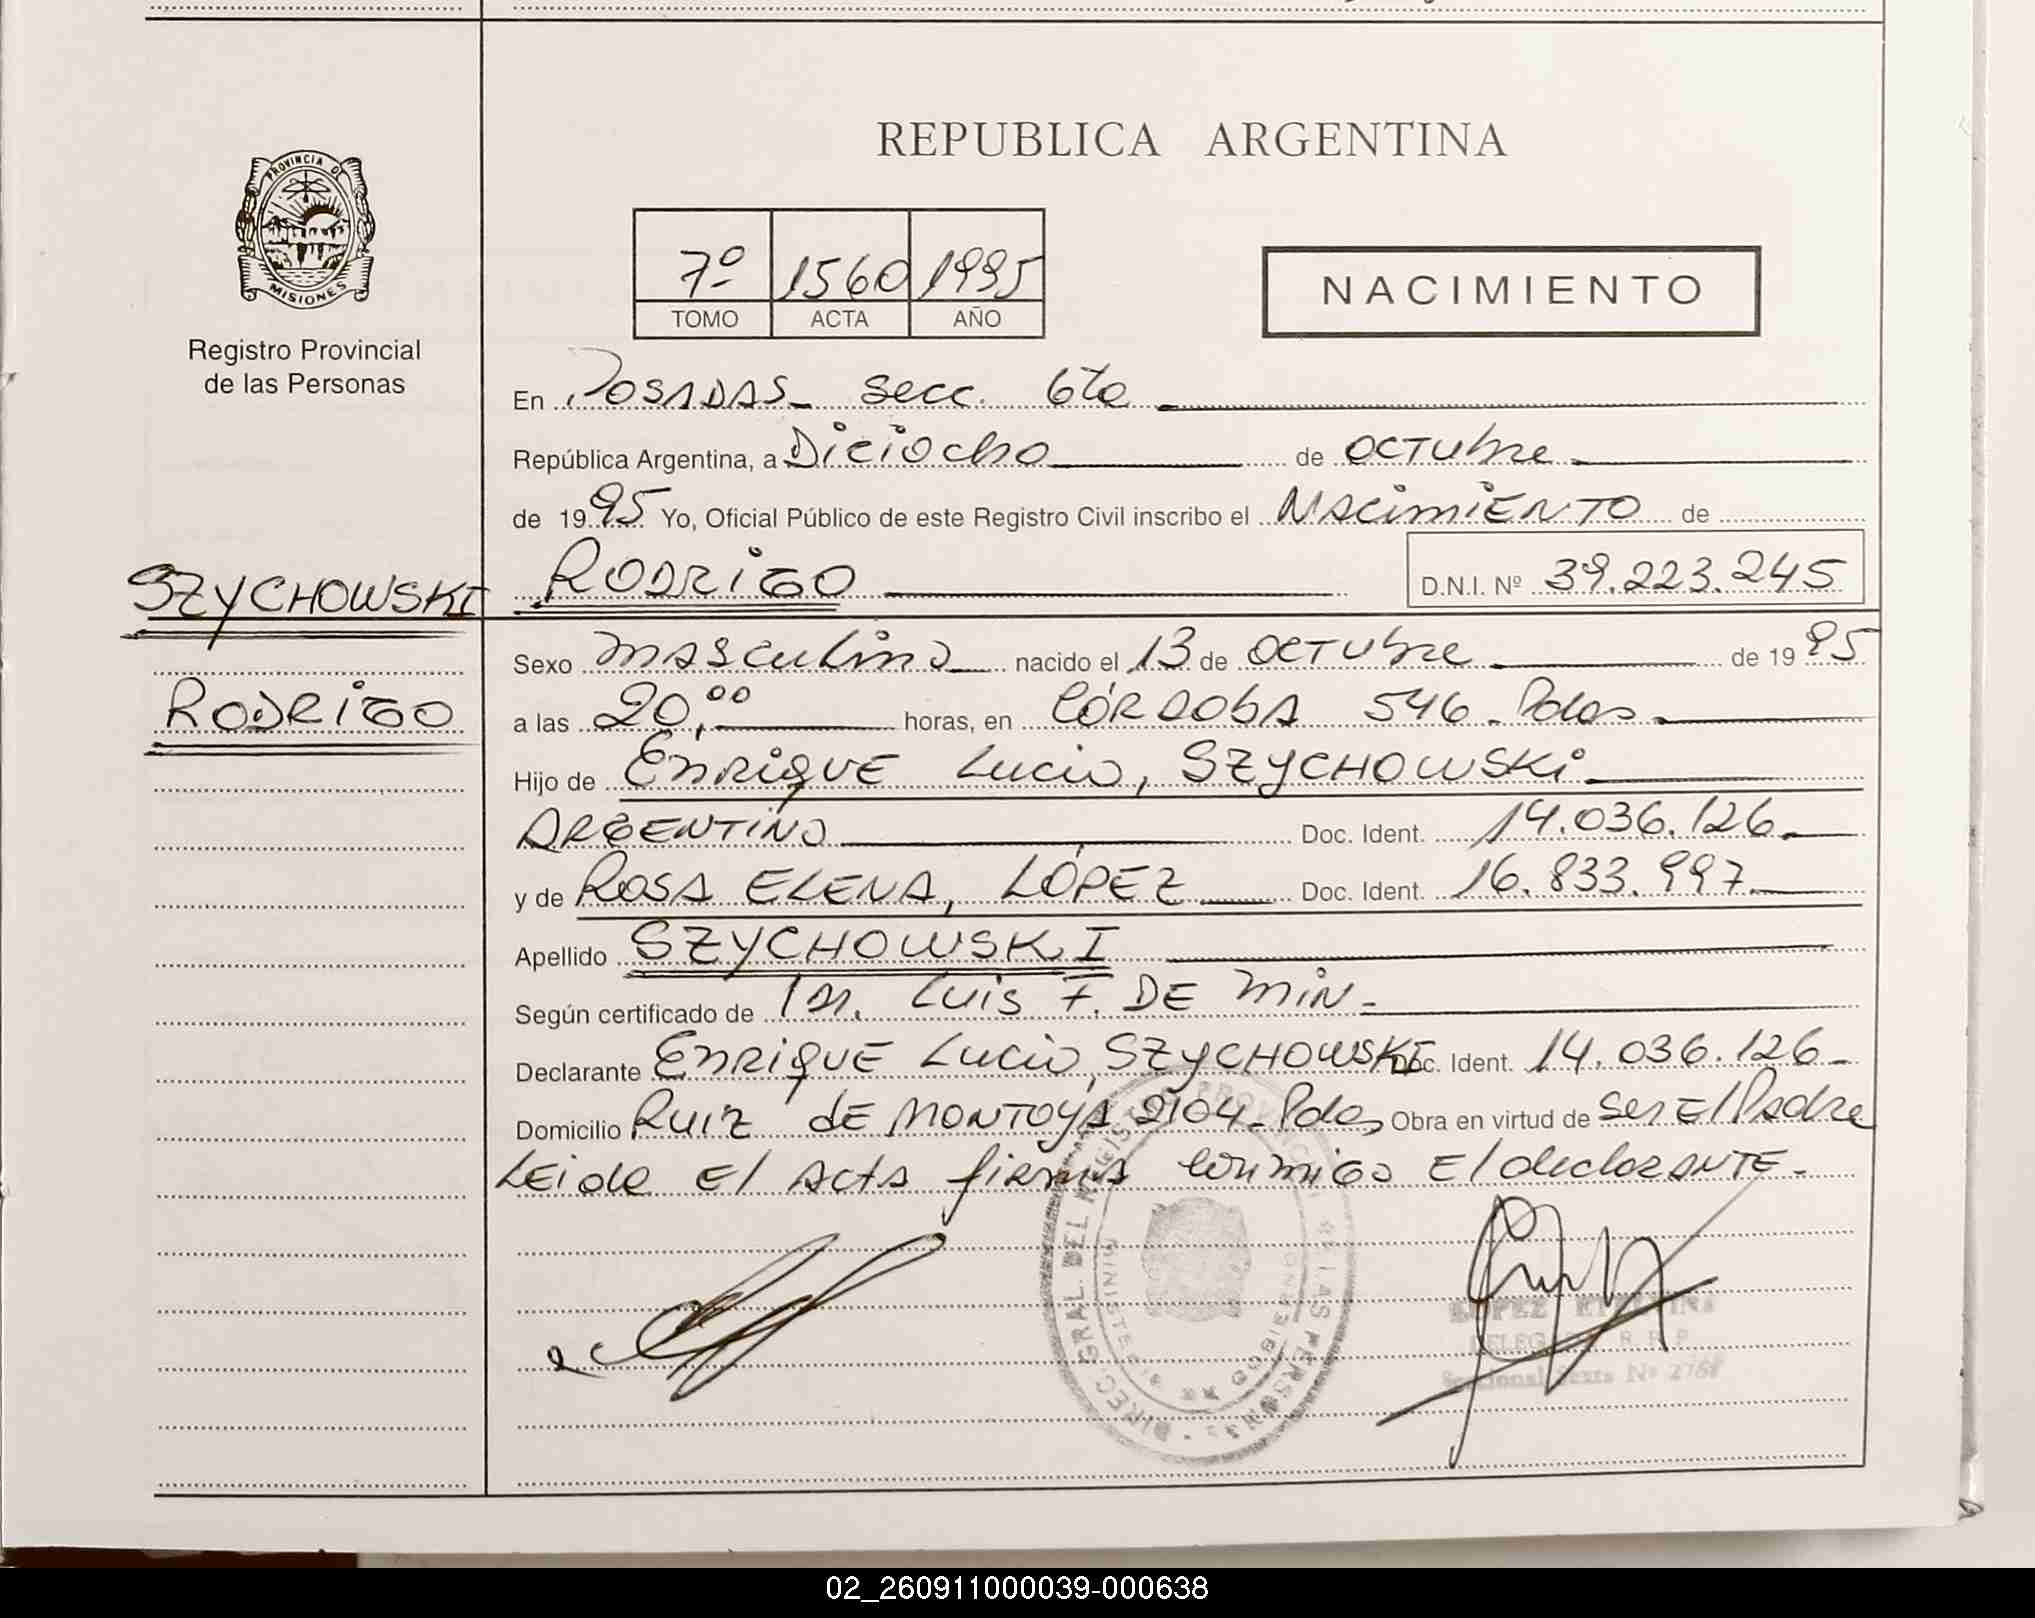 REPUBLICA ARGENTINA
PROVINCIA DE
MISIONES
Registro Provincial
de las Personas
7º 1560 1995
TOMO ACTA AÑO
NACIMIENTO
En POSADAS secc. 6ta
República Argentina, a Dieiocho de OCTubre
de 1995 Yo, Oficial Público de este Registro Civil inscribo el NACimiENTO de
SZYCHOWSKI
RODRIGO
D.N.I. Nº 39.223.245
RODRIGO
Sexo masculino nacido el 13 de OCTubre de 1995
a las 20,00 horas, en CÓRDOBA 546. Pdas
Hijo de ENRIQUE Lucio, SZYCHOWSKi
ARGENTINO Doc. Ident. 14.036.126
y de ROSA ELENA, LÓPEZ Doc. Ident. 16.833.997
Apellido SZYCHOWSKI
Según certificado de Luis F. DE MIN.
Declarante ENRIQUE Lucio, SZYCHOWSKI Doc. Ident. 14.036.126
Domicilio RUIZ dE MONTOYA 2104 Pdas Obra en virtud de ser El Padre
LEida El Acta firma conmigo El declarANTE.
DIREC. GRAL. DEL REGISTRO PROVINCIAL DE LAS PERSONAS
MINISTERIO DE GOBIERNO
LOPEZ
DELEGADA R. R. P.
Seccional Sexta Nº 2768
02_260911000039-000638